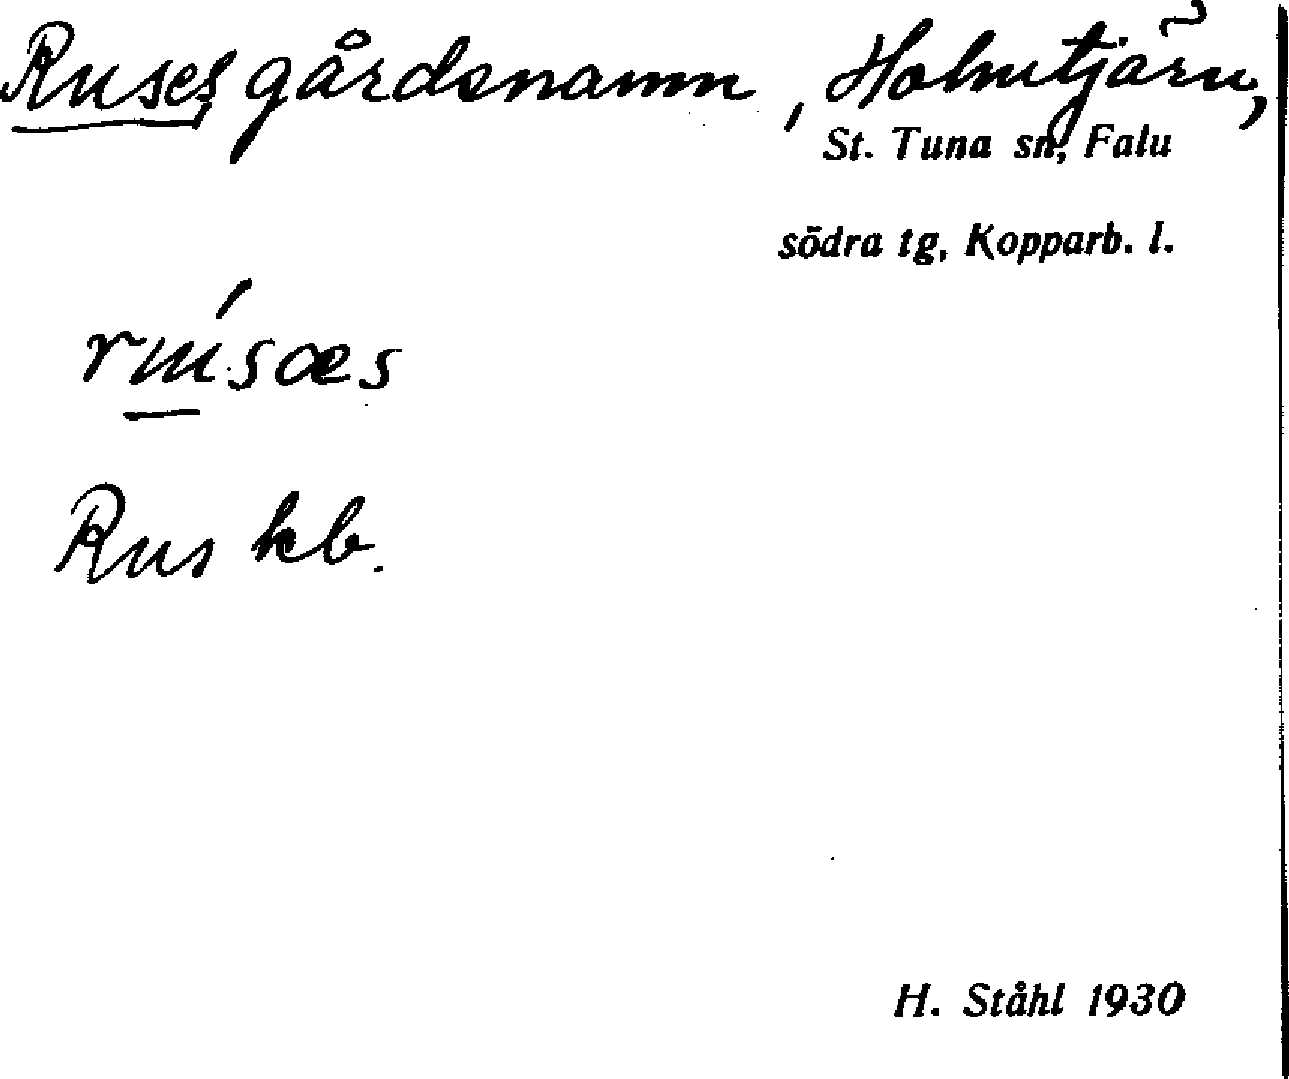 Ruses, gårdsnamn, Holmtjärn,
St. Tuna sn, Falu
södra tg, Kopparb. l.
Rus kb.
H. Ståhl 1930